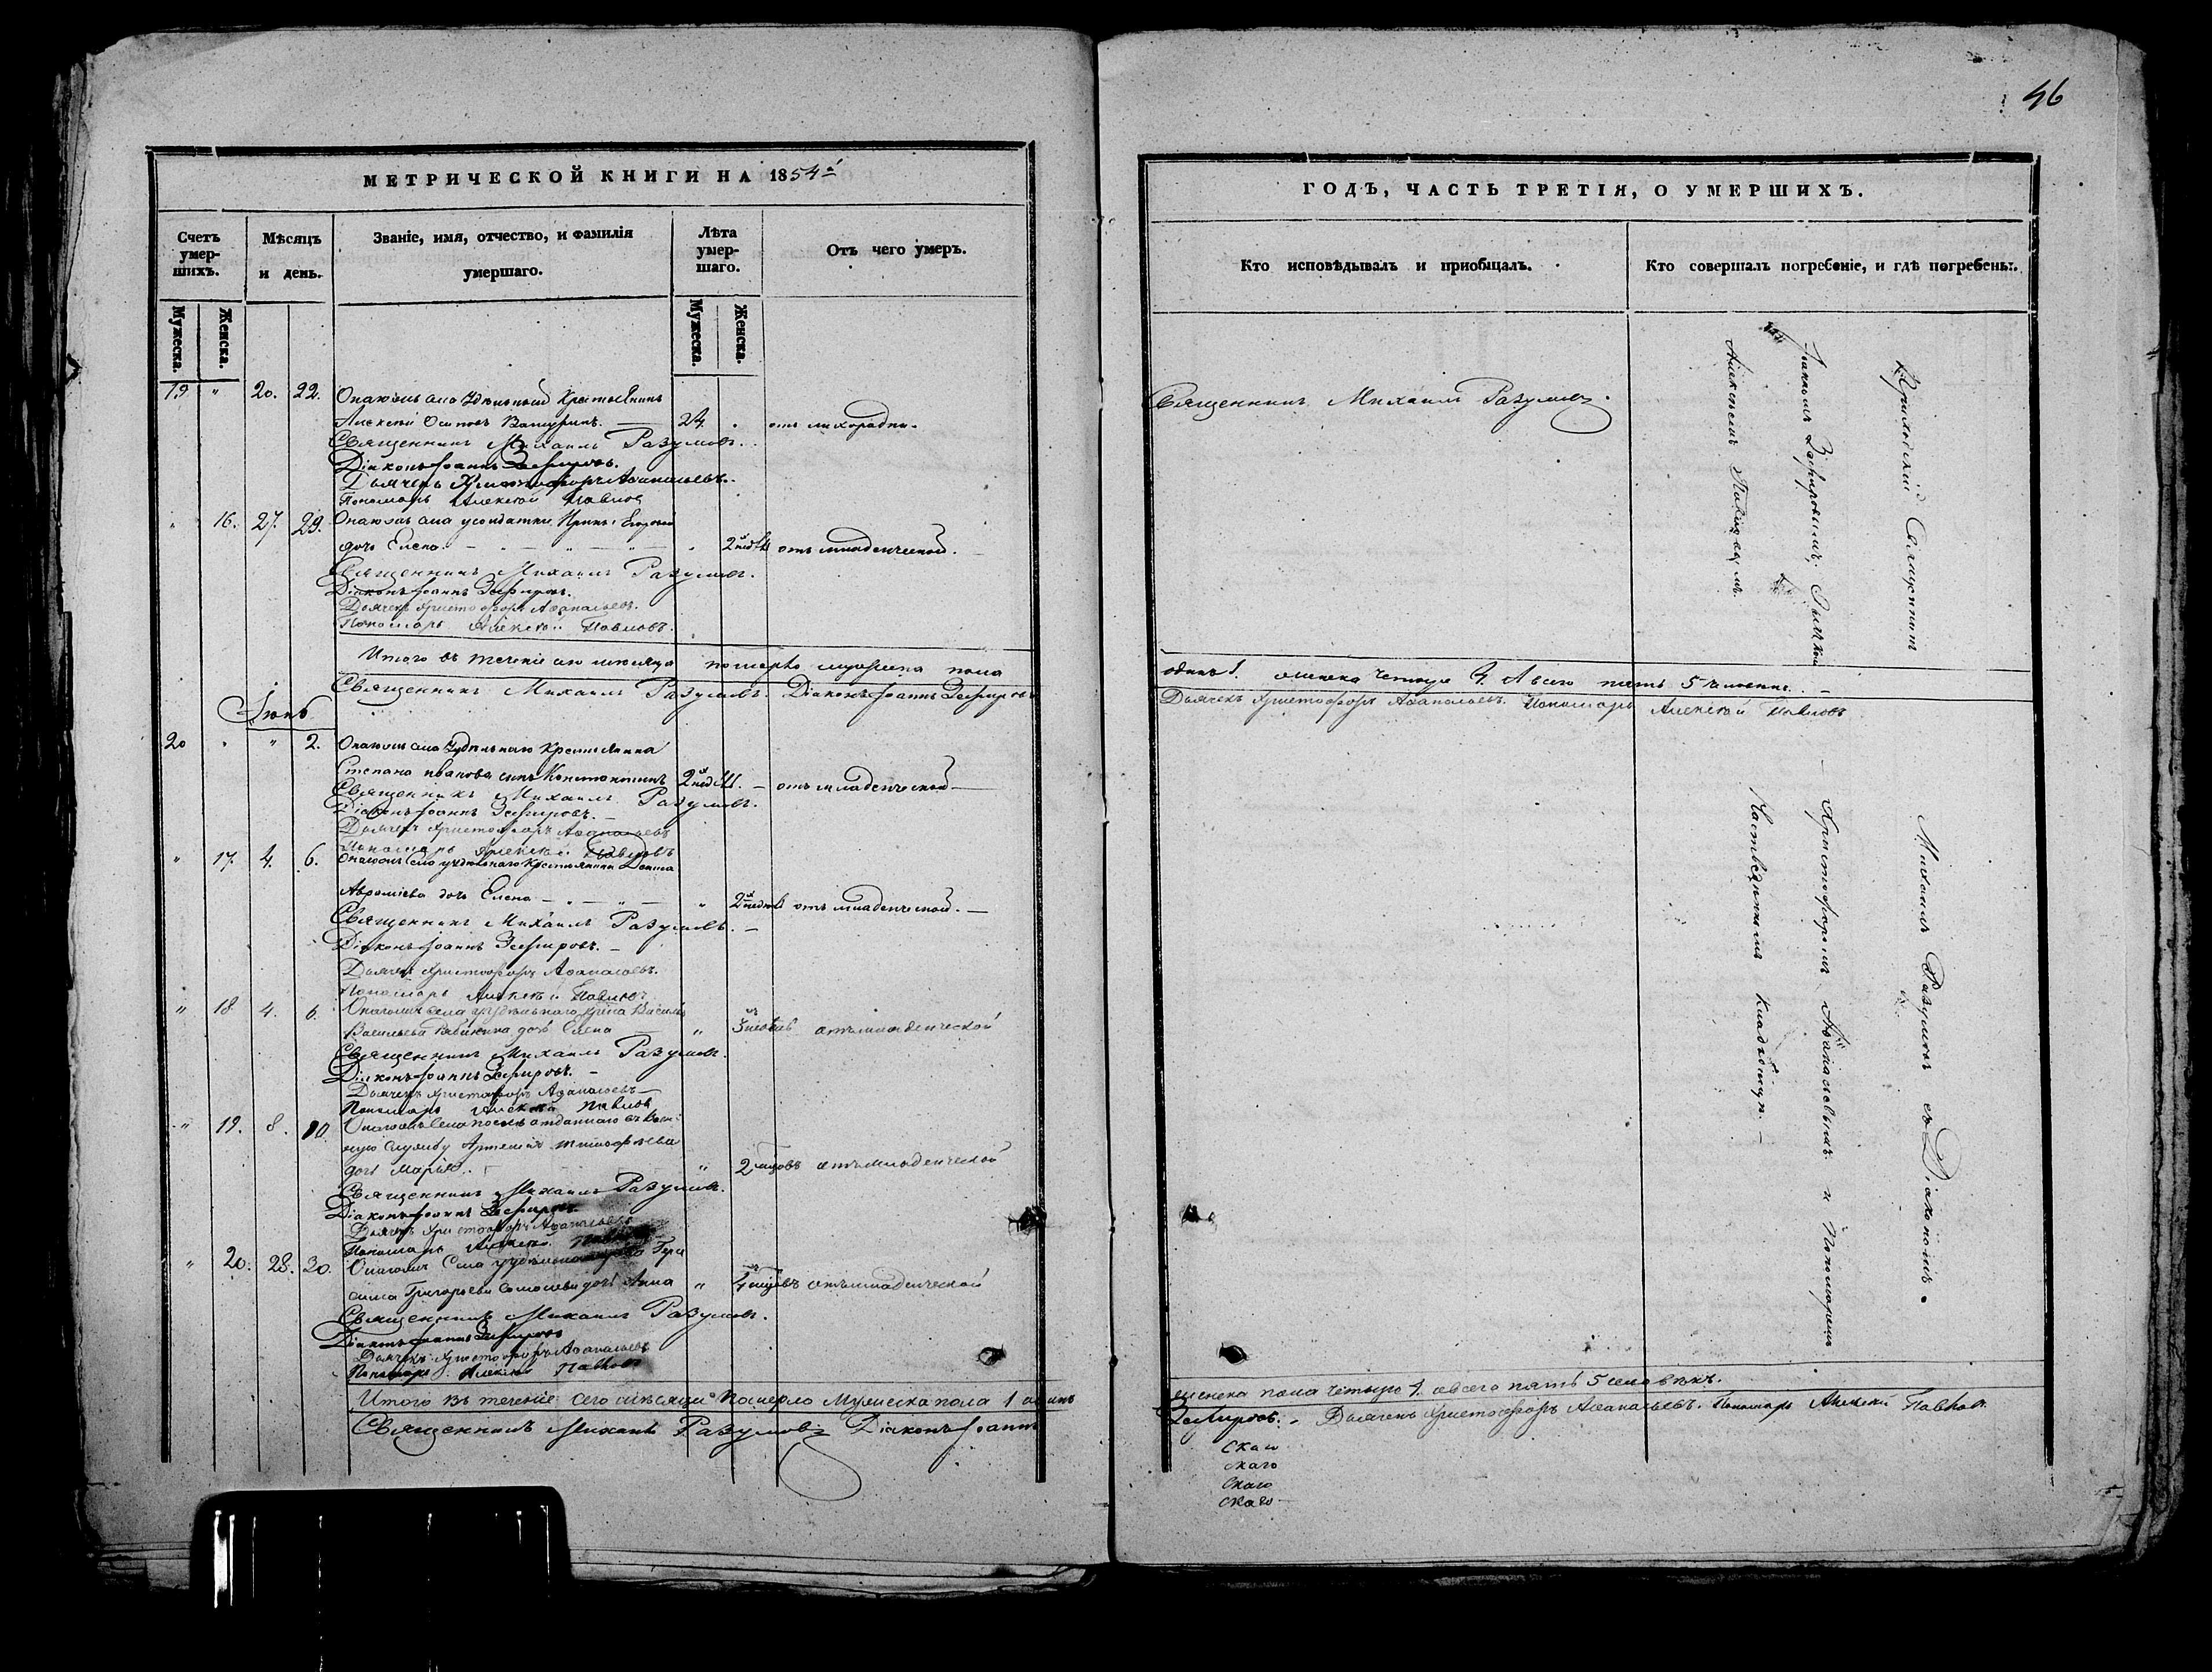 МЕТРИЧЕСКОЙ КНИГИ НА 1854й
Счетъ умер-шихъ.
Мѣсяцъ и день.
Званіе, имя, отчество, и фамилія умершаго.
Лѣта умер-шаго.
Отъ чего умеръ.
Мужеска.
Женска.
Мужеска.
Женска.
19 " 20. 22. Онагожъ села Удѣльный Крестьянинъ
Алексѣй Осиповъ 24. отъ лихорадки.
Священникъ Михаилъ Разумовъ.
Діаконъ Іоаннъ Зефировъ.
Дьячекъ Христофоръ Аѳанасьевъ.
Пономарь Алексѣй Павловъ
" 16. 27. 29. Онагожъ села Ирины Егоровой
дочь Елена. " 2 нед. отъ младенческой.
Священникъ Михаилъ Разумовъ.
Діаконъ Іоаннъ Зефировъ.
Дьячекъ Христофоръ Аѳанасьевъ.
Пономарь Алексѣй Павловъ.
Итого въ теченіе сего мѣсяца померло мужеска пола
Священникъ Михаилъ Разумовъ. Діаконъ Іоаннъ Зефировъ
Іюнь
20 " " 2. Онагожъ села Удѣльнаго Крестьянина
Степана Иванова сынъ Константинъ 2 нед. отъ младенческой
Священникъ Михаилъ Разумовъ.
Діаконъ Іоаннъ Зефировъ.
Дьячекъ Христофоръ Аѳанасьевъ
Пономарь Алексѣй Павловъ
" 17. 4. 6. Онагожъ села удѣльнаго Крестьянина
дочь Елена " 2 недѣль отъ младенческой.
Священникъ Михаилъ Разумовъ.
Діаконъ Іоаннъ Зефировъ.
Дьячекъ Христофоръ Аѳанасьевъ.
Пономарь Алексѣй Павловъ
" 18. 4. 6. Онагожъ села удѣльнаго Василья
Васильева дочь Елена " 3 отъ младенческой
Священникъ Михаилъ Разумовъ.
Діаконъ Іоаннъ Зефировъ.
Дьячекъ Христофоръ Аѳанасьевъ
Пономарь Алексѣй Павловъ
" 19. 8. 10. Онагожъ Села отданнаго въ Воен-
ную службу
дочь Марья. " 2 отъ младенческой
Священникъ Михаилъ Разумовъ.
Діаконъ Іоаннъ Зефировъ.
Дьячекъ Христофоръ Аѳанасьевъ
Пономарь Алексѣй Павловъ
" 20. 28. 30. Онагожъ Села
Григорьева дочь Анна " 4 отъ младенческой
Священникъ Михаилъ Разумовъ.
Діаконъ Іоаннъ Зефировъ
Дьячекъ Христофоръ Аѳанасьевъ
Пономарь Алексѣй Павловъ
Итого въ теченіе сего мѣсяца померло Мужеска пола 1 одинъ
Священникъ Михаилъ Разумовъ Діаконъ Іоаннъ
46
ГОДЪ, ЧАСТЬ ТРЕТІЯ, О УМЕРШИХЪ.
Кто исповѣдывалъ и пріобщалъ.
Кто совершалъ погребеніе, и гдѣ погребены.
Священникъ Михаилъ Разумовъ.
Приходскій Священникъ
Іоанномъ Зефировымъ,
Алексѣемъ Павловымъ
одинъ 1. женска четыре 4. А всего пять 5 человѣкъ.
Дьячекъ Христофоръ Аѳанасьевъ. Пономарь Алексѣй Павловъ
Михаилъ Разумовъ съ Діакономъ
Христофоромъ Аѳанасьевымъ и Пономаремъ
кладбищѣ.
женска пола четыре 4. а всего пять 5 человѣкъ.
Зефировъ. Дьячекъ Христофоръ Аѳанасьевъ. Пономарь Алексѣй Павловъ.
Скаго
скаго
Скаго
скаго